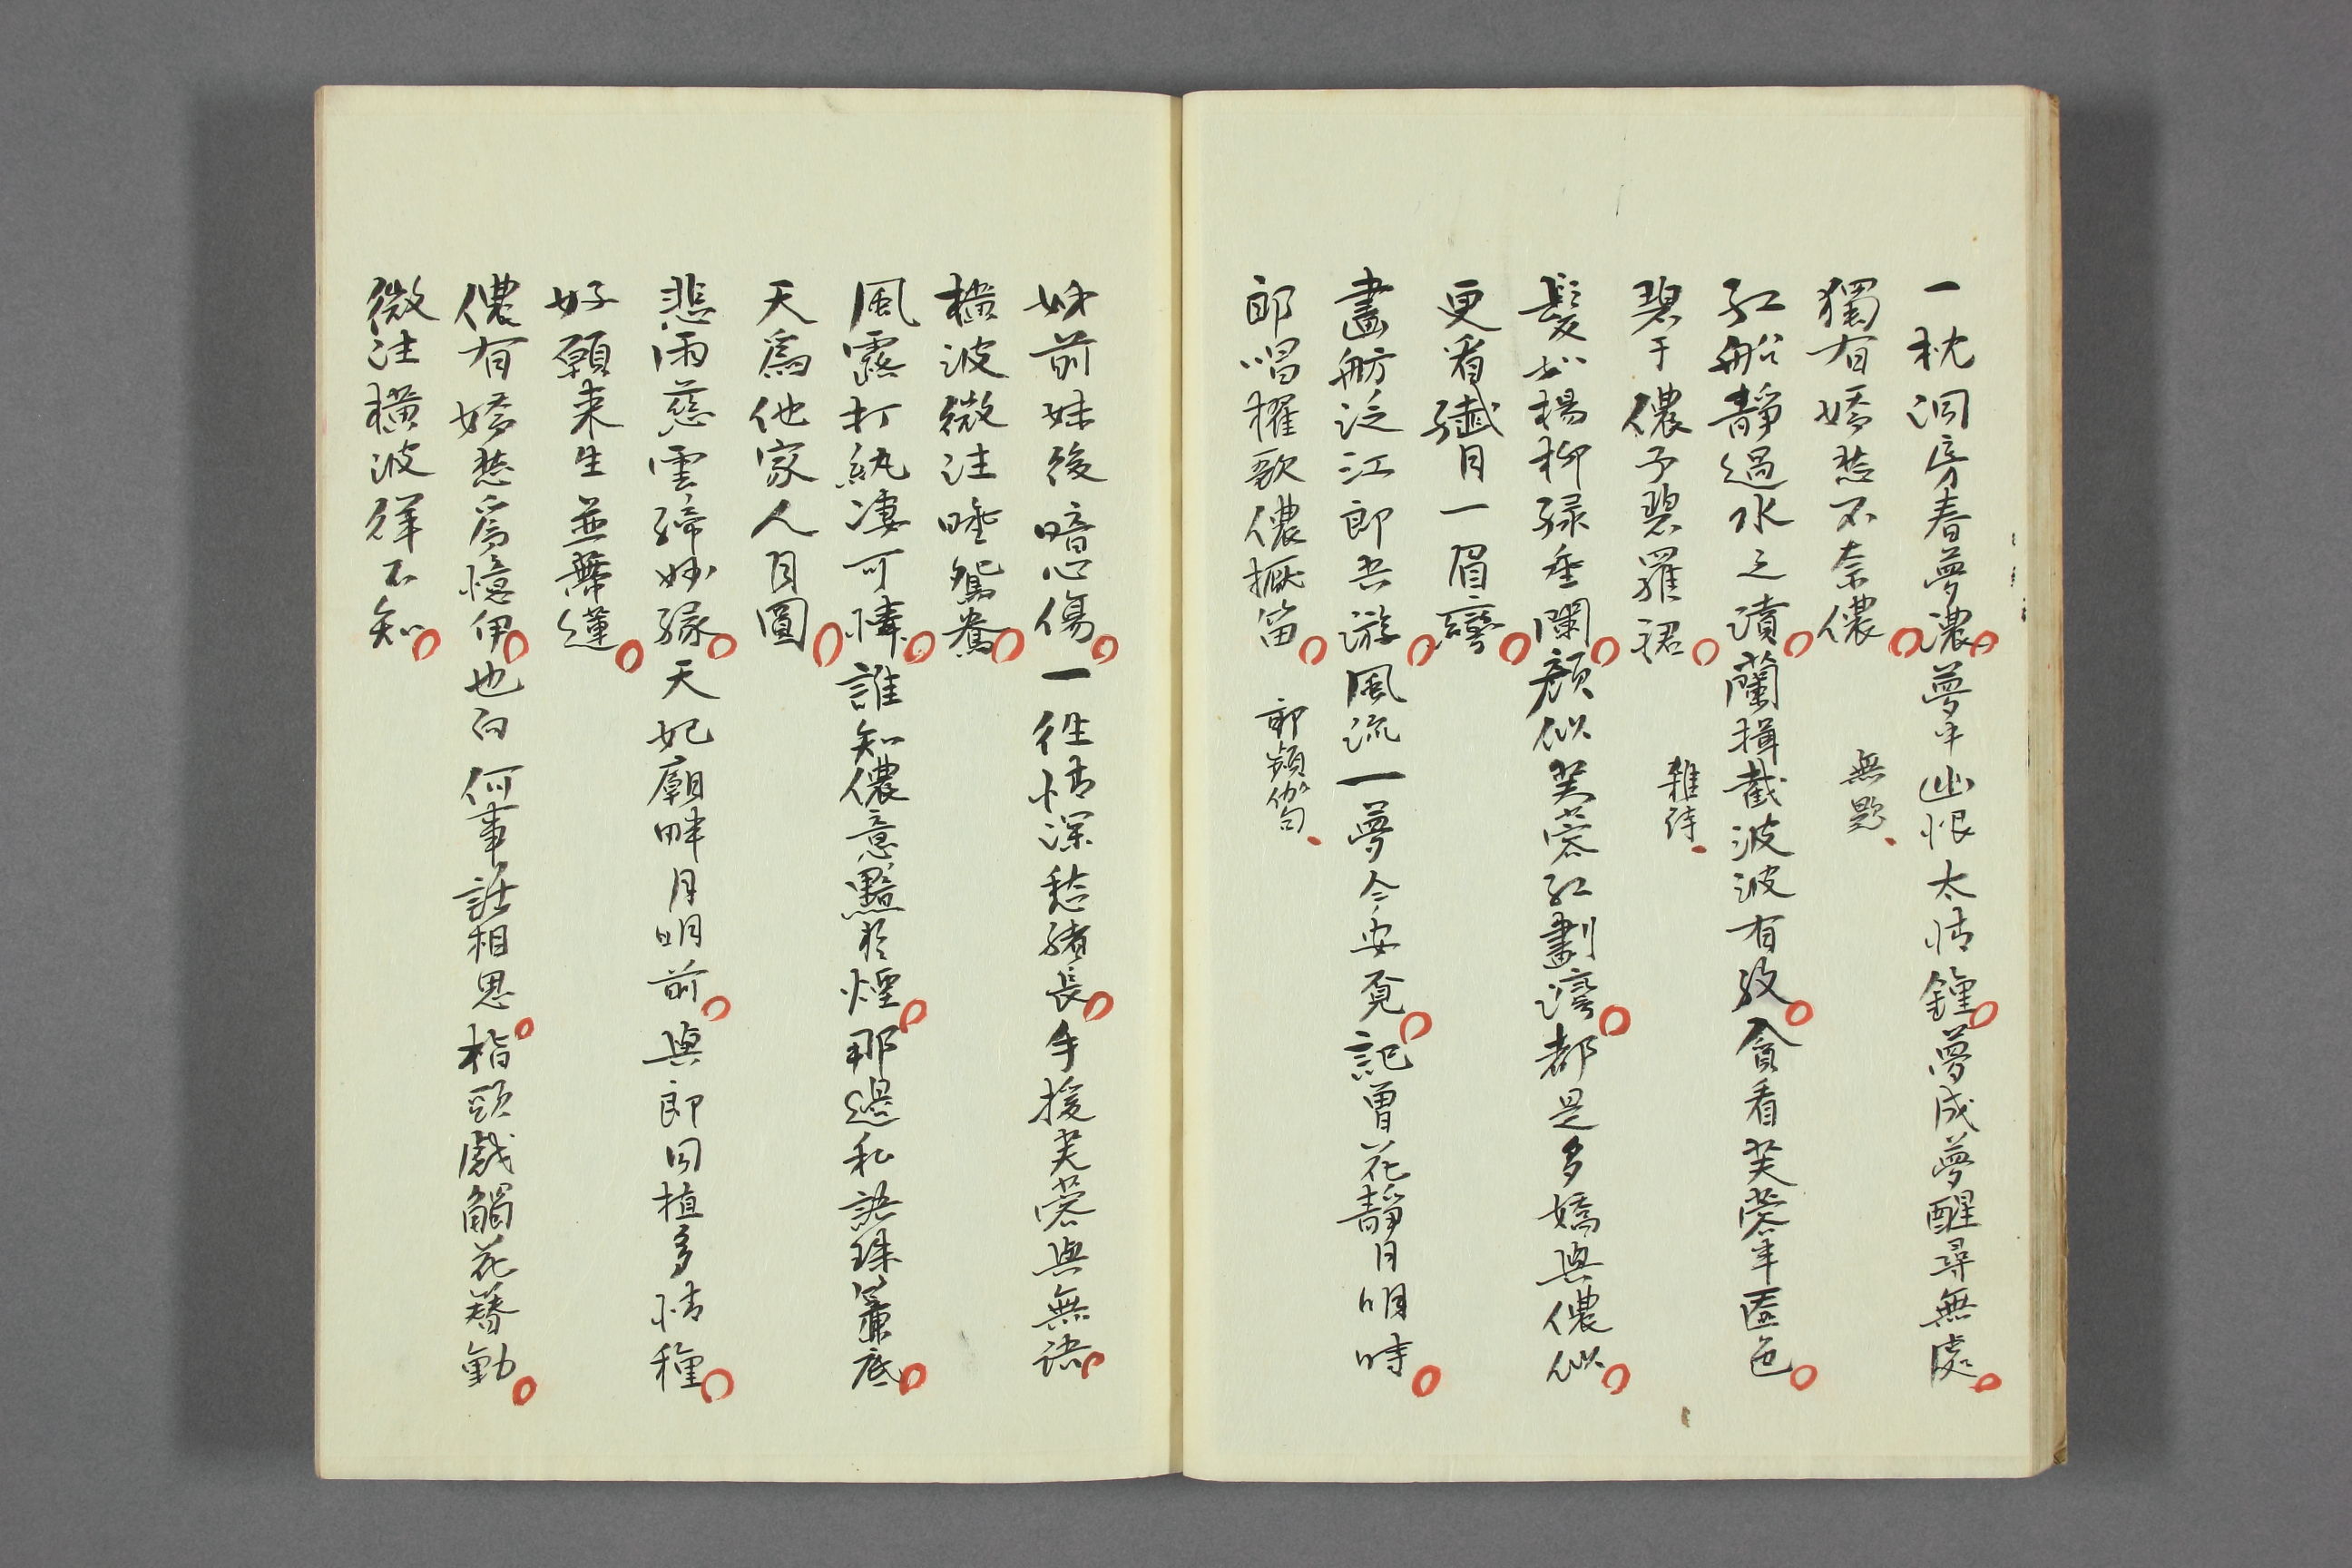 一枕洞房春夢濃夢中幽恨太情鍾夢成夢醒尋無處
獨有嬌愁不奈儂
無題
紅船靜過水之濆蘭楫截波波有紋貪看芙蓉半匿色
碧于儂予碧羅裙
雜詩
髮如楊柳綠垂闌顏似芙蓉紅劃灣都是多嬌與儂似
更看纖月一眉彎
畫舫泛江郎共游風流一夢今安覓記曾花靜月明時
郎唱櫂歌儂擫笛
郭頻伽句
妹前妹後暗心傷一往情深愁緒長手挼芙蓉與無語
橫波微注睡鴛鴦
風露打紈凄可憐誰知儂意黯於煙那邊私語珠簾底
天爲他家人月圓
悲雨慈雲締妙緣天妃廟畔月明前與郎同植多情種
好願來生並蒂蓮
儂有嬌愁爲憶伊也向何事話相思指頭戲觸花簪動
微注橫波佯不知